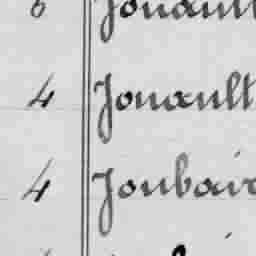 6 Jouault
4 Jouault
4 Joubair